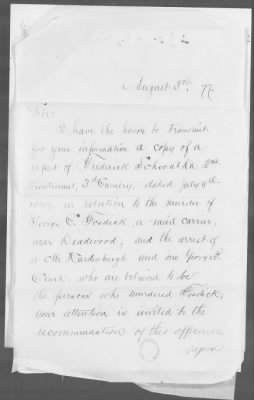 August 3rd 77.
Sir:
I have the honor to transmit
for your information a copy of a
report of Frederick Schwatka 2nd
Lieutenant, 3d Cavalry, dated July 9th,
1877, in relation to the murder of
George C. Fosdick, a mail carrier,
near Deadwood, and the arrest of
a Mr Hardenburgh and one George
Clark, who are believed to be
the persons who murdered Fosdick;
your attention is invited to the
recommendation of this officer in
report